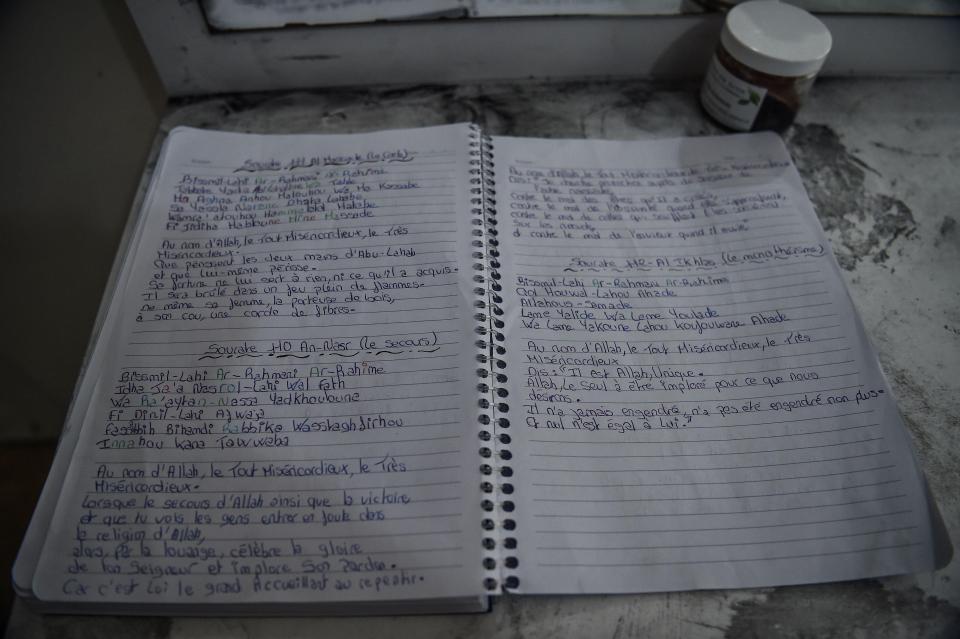 Sourate 111 Al Masad (la corde)
Bissmil-Lahi Ar-Rahmani Ar-Rahime
Tabbate Yada Abi Tabbe
Ma Aghna Anhou Malouhou Wa Ma Kassabe
Sa Yassla Narane Dhata Lahabe
Wamra'atouhou Hammalatal Hatabe
Fi Jidiha Habloune Mine Massade
Au nom d'Allah, le Tout Miséricordieux, le Très
Miséricordieux.
Que périssent les deux mains d'Abu-Lahab
et que lui-même périsse.
Sa fortune ne lui sert à rien, ni ce qu'il a acquis.
Il sera brûlé dans un feu plein de flammes.
de même sa femme, la porteuse de bois,
à son cou, une corde de fibres.
Sourate 110 An-Nasr (le secours)
Bissmil-Lahi Ar-Rahmani Ar-Rahime
Idha Ja'a Nasrol-Lahi Wal Fath
Wa Ra'aytan-Nassa Yadkhouloune
Fi Dinil-Lahi Afwaja
Fassabbih Bihamdi Rabbika Wasstaghdirhou
Innahou Kana Tawwaba
Au nom d'Allah, le Tout Miséricordieux, le Très
Miséricordieux.
Lorsque le secours d'Allah ainsi que la victoire
et que tu vois les gens entrer en foule dans
la religion d'Allah,
alors, par la louange, célèbre la gloire
de ton Seigneur et implore Son pardon.
Car c'est Lui le grand Accueillant au repentir.
Au nom d'Allah, le Tout Miséricordieux, le Très Miséricordieux
Dis: "Je cherche protection auprès du Seigneur de
l'aube naissante,
contre le mal des êtres qu'Il a créés,
contre le mal de l'obscurité quand elle s'approfondit,
contre le mal de celles qui soufflent
sur les nœuds,
et contre le mal de l'envieux quand il envie
Sourate 112-Al Ikhlas (le monothéisme)
Bissmil-Lahi Ar-Rahmani Ar-Rahime
Qol Houwal-Lahou Ahade
Allahous-Samade
Lame Yalide Wa Lame Youlade
Wa Lame Yakoune Lahou Koufouwane Ahade
Au nom d'Allah, le Tout Miséricordieux, le Très
Miséricordieux
Dis: "Il est Allah, Unique.
Allah, Le Seul à être imploré pour ce que nous
désirons.
Il n'a jamais engendré, n'a pas été engendré non plus.
Et nul n'est égal à Lui."